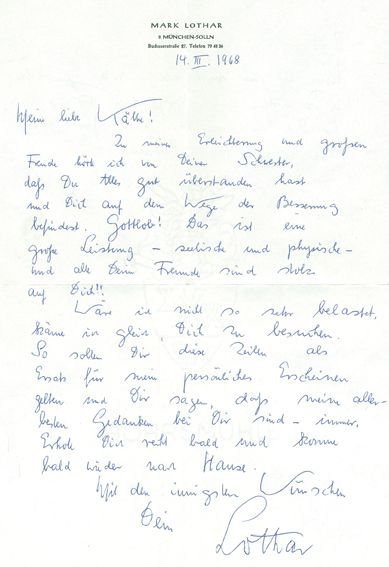 MARK LOTHAR
8 MÜNCHEN-SOLLN
Buchauerstraße 27. Telefon 79 48 36
14. III. 1968
Meine liebe Käthe!
Zu meiner Erleichterung und großen
Freude hörte ich von Deiner Schwester,
daß Du Alles gut überstanden hast
und Dich auf dem Wege der Besserung
befindest. Gottlob! Das ist eine
große Leistung – seelische und physische –
und alle Deine Freunde sind stolz
auf Dich!!
Wäre ich nicht so sehr belastet,
käme ich gleich Dich zu besuchen.
So sollen Dir diese Zeilen als
Ersatz für mein persönliches Erscheinen
gelten und Dir sagen, daß meine aller-
besten Gedanken bei Dir sind – immer.
Erhole Dich recht bald und komme
bald wieder nach Hause.
Mit den innigsten Wünschen
Dein
Lothar